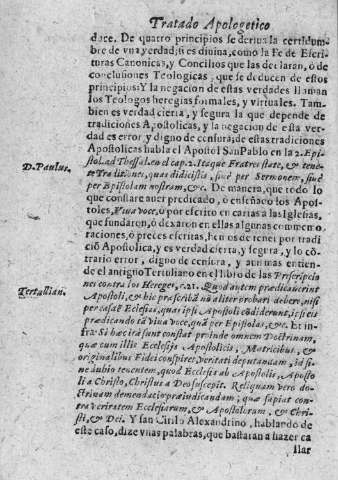 Tratado Apologetico
dace. De quatro principios se deriua la certidum-
bre de vna verdad, si es diuina, como la Fe de Escri-
turas Canonicas, y Concilios que las declaran, ò de
conclusiones Teologicas, que se deducen de estos
principios: Y la negacion de estas verdades llaman
los Teologos heregias formales, y virtuales. Tam-
bien es verdad cierta, y segura la que depende de
tradiciones Apostolicas, y la negacion de esta ver-
dad es error, y digno de censura; destas tradiciones
Apostolicas habla el Apostol San Pablo en la 2. Epi-
D. Paulus.
stol. ad Thessal. en el cap. 2. Itaque Fratres state, & tene-
te Traditiones, quas didicistis, siuè per Sermonem, siuè
per Epistolam nostram, &c. De manera, que todo lo
que constare auer predicado, ò enseñado los Apos-
toles, Viua voce, ò por escrito en cartas a las Iglesias,
que fundaron, ò dexaron en ellas algunas commemo-
raciones, ò preces escritas, hemos de tener por tradi
ciõ Apostolica, y es verdad cierta, y segura, y lo cõ-
trario error, digno de censura, y aunmas entien-
de el antiguo Tertuliano en el libro de las Prescripcio-
Tertullian.
nes contra los Hereges, c. 21. Quod autem prædicauerint
Apostoli, & hic præscribã nõ aliter probari debere, nisi
per easdẽ Eclesias, quas ipsi Apostoli cõdiderunt, ipsi eis
prædicando tã viua voce, quã per Epistolas, &c. Et in-
fra: Si hæc ita sunt constat proinde omnem Doctrinam,
quæ cum illis Eclesijs Apostolicis, Matricibus, &
originalibus Fidei conspiret, veritati deputandam, id si-
ne dubio tenentem, quod Eclesiæ ab Apostolis, Aposto
li a Christo, Christus a Deo suscepit. Reliquam vero do-
ctrinam de mendacio præiudicandam; quæ sapiat con-
tra veritatem Ecclesiarum, & Apostolorum, & Chri-
sti, & Dei. Y san Cirilo Alexandrino, hablando de
este caso, dize vnas palabras, que bastaràn a hazer ca
llar